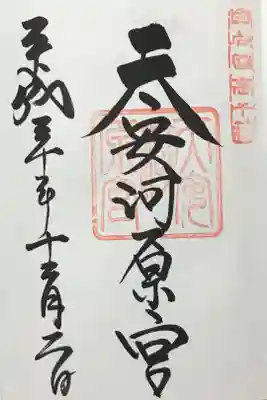 天安河原宮
平成三十年十二月二日